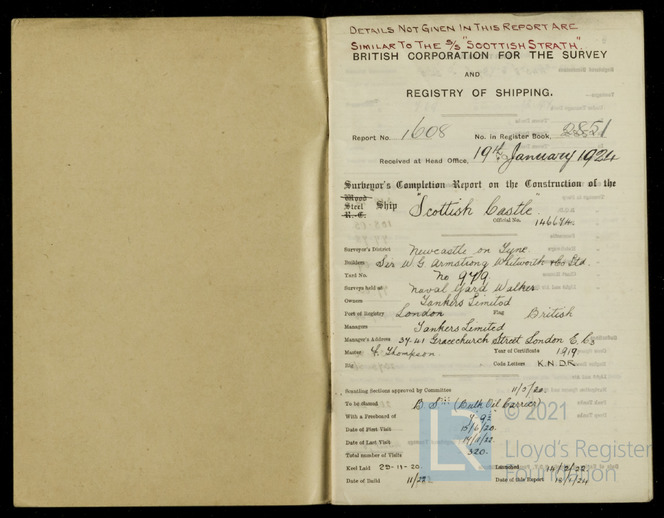 DETAILS NOT GIVEN IN THIS REPORT ARE
SIMILAR TO THE S/S "SCOTTISH STRATH".
BRITISH CORPORATION FOR THE SURVEY
AND
REGISTRY OF SHIPPING.
Report No. 1608 No. in Register Book, 2851
Received at Head Office, 19th January 1924
Surveyor's Completion Report on the Construction of the
Wood
Steel Ship "Scottish Castle"
R.-C.
Official No. 146674.
Surveyor's District Newcastle on Tyne
Builders Sir W G Armstrong Whitworth & Co Ltd.
Yard No. No 979
Surveys held at Naval Yard Walker
Owners Tankers Limited
Port of Registry London Flag British
Managers Tankers Limited
Manager's Address 39.41 Gracechurch Street London E.C.3
Master Thompson Year of Certificate 1919.
Rig Code Letters K.N.D.R.
Scantling Sections approved by Committee
To be classed B.S (Bulk Oil Carrier)
With a Freeboard of
Date of First Visit 15/6/20.
Date of Last Visit
Total number of Visits 320.
Keel Laid 29-11-20. Launched
Date of Build 11/22 Date of this Report
© 2021
LR
Lloyd's Register
Foundation